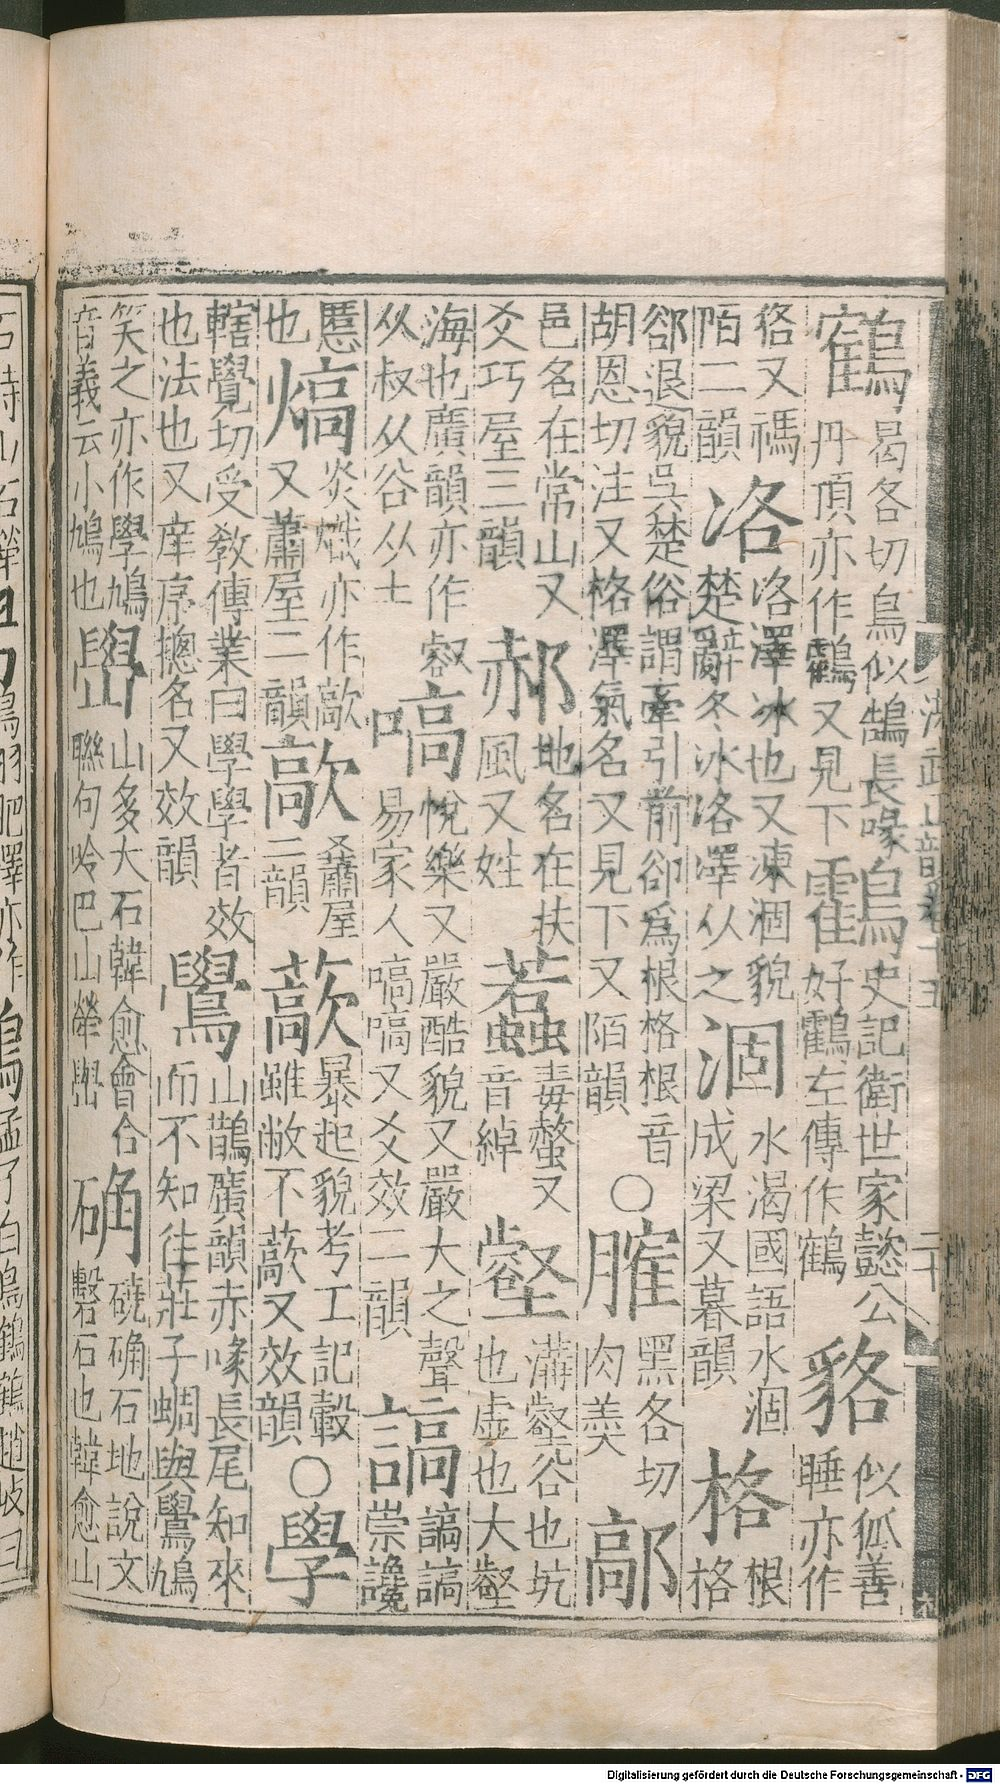 洪武正韻卷十五 二十
鶴 曷各切鳥似鵠長喙
丹頂亦作鸖又見下
鸖 史記衛世家懿公
好鸖左傳作鶴
貉 似狐善
睡亦作
狢又禡
陌二韻
洛 洛澤冰也又凍涸貌
楚辭冬冰洛澤从之
涸 水渴國語水涸
成梁又暮韻
格 根
格
郤退貌吳楚俗謂牽引前卻爲根格根音
胡恩切注又格澤氣名又見下又陌韻
○臛 黑各切
肉羙
鄗
邑名在常山又
爻巧屋三韻
郝 地名在扶
風又姓
蠚 毒螫又
音綽
壑 溝壑谷也坑
也虛也大壑
海也廣韻亦作叡
从叔从谷从土
嗃 悅樂又嚴酷貌又嚴大之聲
易家人嗃嗃又爻效二韻
謞 謞謞
崇讒
慝
也
熇 炎熾亦作歊
又蕭屋二韻
歊 蕭屋
二韻
藃 暴起貌考工記轂
雖敝不藃又效韻
○學
轄覺切受敎傳業曰學學者效
也法也又庠序摠名又效韻
鷽 山鵲廣韻赤喙長尾知來
而不知往莊子蜩與鷽鳩
笑之亦作學鳩
音義云小鳩也
嶨 山多大石韓愈會合
聯句吟巴山犖嶨
确 磽确石地說文
磬石也韓愈山
鳥羽肥澤亦作
孟子白鳥鶴鶴趙岐曰
Digitalisierung gefördert durch die Deutsche Forschungsgemeinschaft - DFG